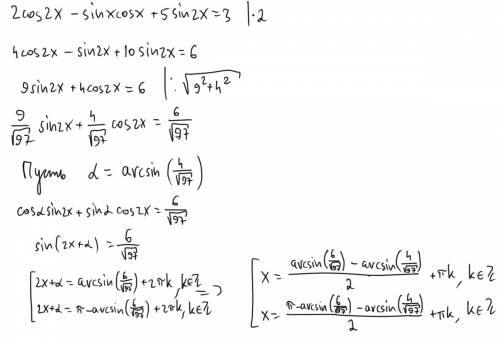 2cos2x − sinxcosx + 5sin2x = 3 | ·2
4cos2x − sin2x + 10sin2x = 6
9sin2x + 4cos2x = 6 | : √(9²+4²)
9/√97 sin2x + 4/√97 cos2x = 6/√97
Пусть α = arcsin(4/√97)
cosα sin2x + sinα cos2x = 6/√97
sin(2x+α) = 6/√97
[ 2x+α = arcsin(6/√97) + 2πk, k∈ℤ
[ 2x+α = π − arcsin(6/√97) + 2πk, k∈ℤ =>
[ x = (arcsin(6/√97) − arcsin(4/√97))/2 + πk, k∈ℤ
[ x = (π − arcsin(6/√97) − arcsin(4/√97))/2 + πk, k∈ℤ